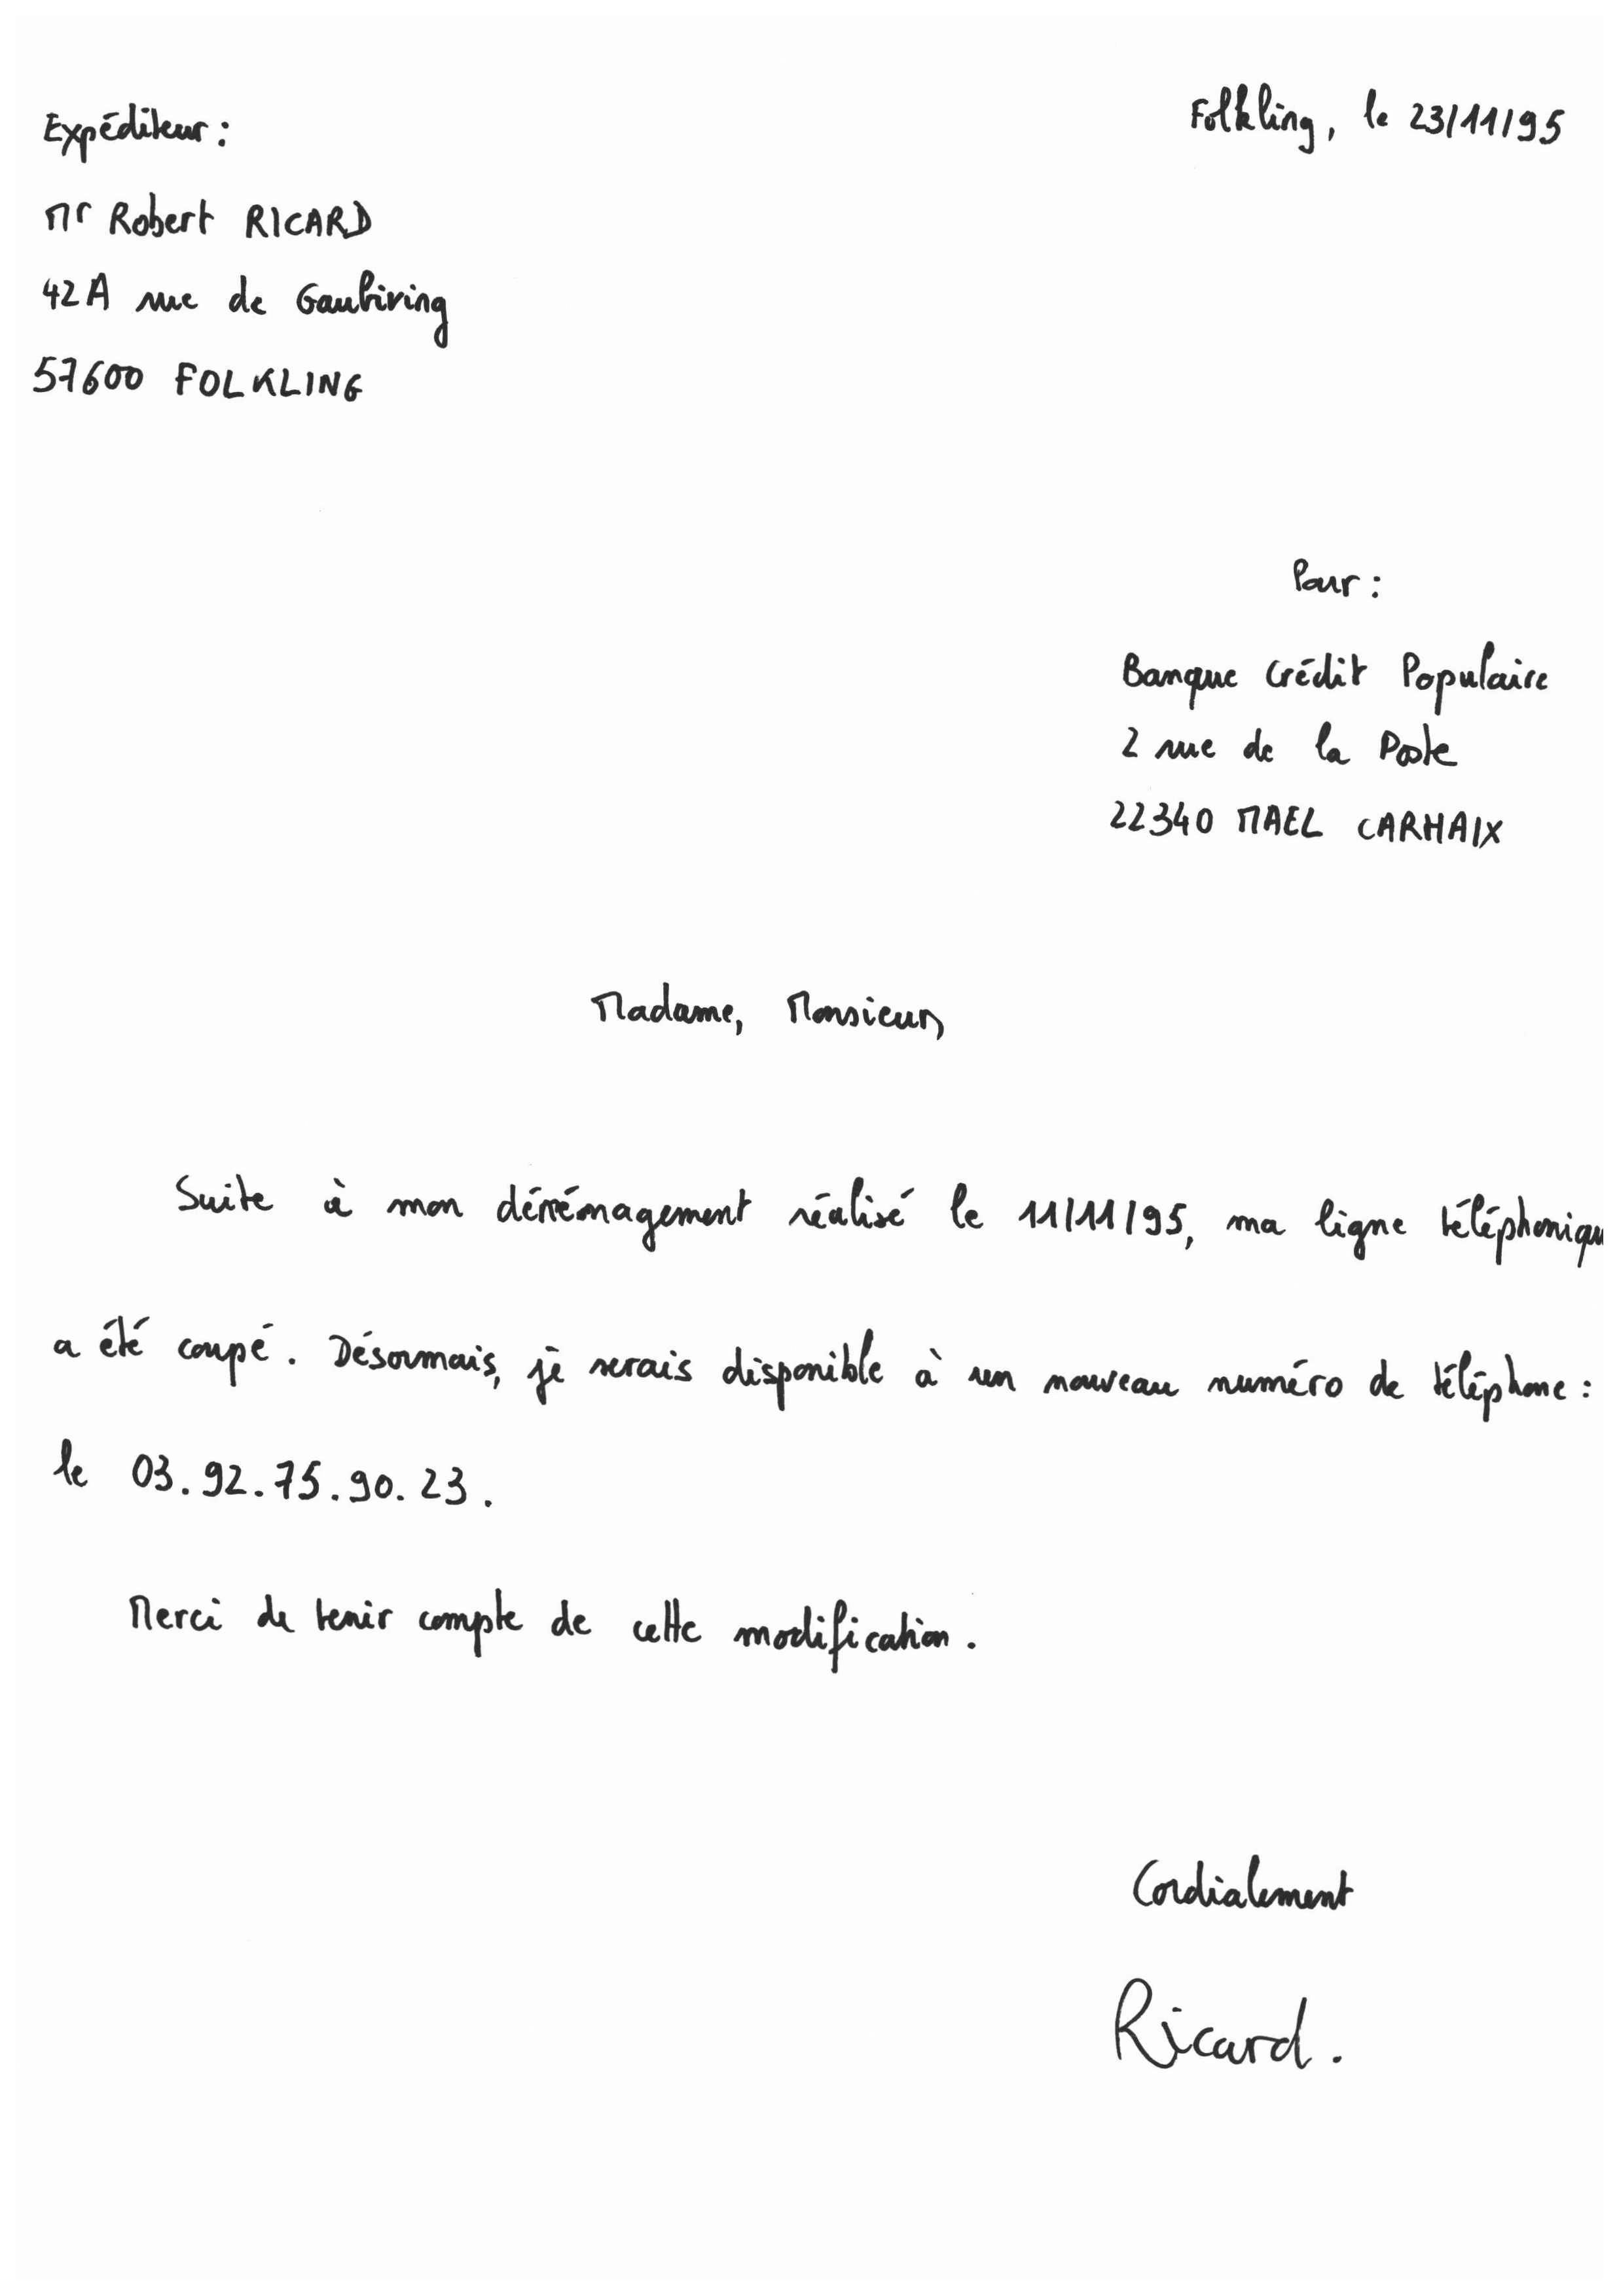 Expéditeur :
Folkling, le 23/11/95
Mr Robert RICARD
42A rue de Gaubiving
57600 FOLKLING
Pour :
Banque Crédit Populaire
2 rue de la Poste
22340 MAEL CARHAIX
Madame, Monsieur,
Suite à mon déménagement réalisé le 11/11/95, ma ligne téléphoniqu
a été coupé. Désormais, je serais disponible à un nouveau numéro de téléphone :
le 03.92.75.90.23.
Merci de tenir compte de cette modification.
Cordialement
Ricard.